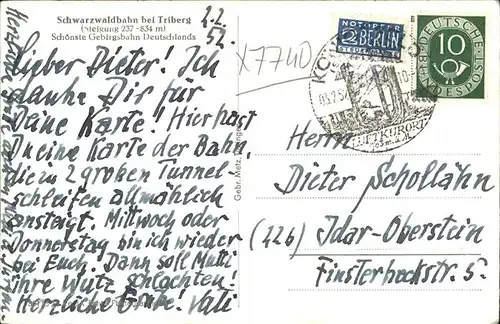 Schwarzwaldbahn bei Triberg
(Steigung 237 - 834 m)
Schönste Gebirgsbahn Deutschlands
2.2.
52.
Lieber Dieter! Ich
danke Dir für
Deine Karte! Hier hast
Du eine Karte der Bahn,
die in 2 großen Tunnel-
schleifen allmählich
ansteigt. Mittwoch oder
Donnerstag bin ich wieder
bei Euch. Dann soll Mutti
ihre Wutz schlachten!
Herzliche Grüße. Vati
Gebr. Metz,
X7740
NOTOPFER
2 BERLIN
STEUERMARKE
DEUTSCHE
BUNDESPOST
10
LUFTKURORT
Herrn
Dieter Schollähn
(22b) Idar-Oberstein
Finsterheckstr. 5.